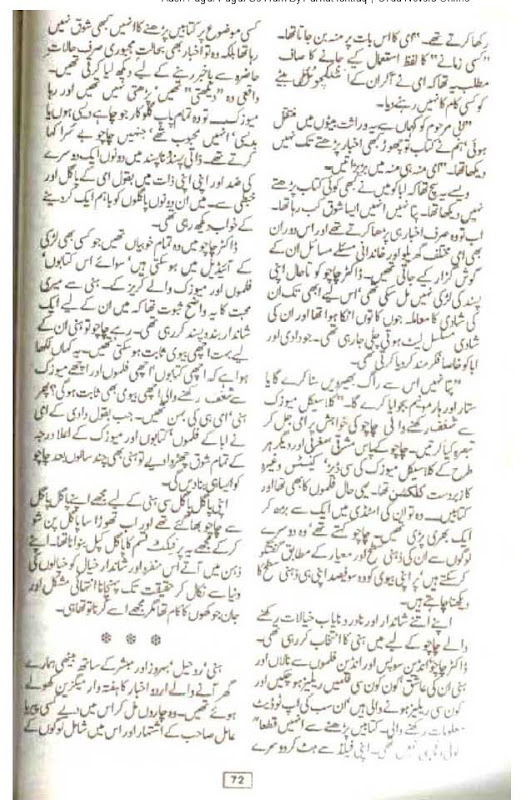 رکھا کرتے تھے۔" امی کا اس بات پر منہ بن جاتا تھا۔
"کسی زمانے" کا لفظ استعمال کیے جانے کا صاف
مطلب یہ تھا کہ امی نے آ کر ان کے بیٹے
کو کسی کام کا نہ رہنے دیا۔
"ابی مرحوم کو کہاں سے یہ وراثت بیٹوں میں منتقل
ہوئی، ہم نے کتاب تو چھوڑ کبھی اخبار پڑھتے تک نہیں
دیکھا تھا۔" امی منہ ہی منہ میں بڑبڑاتیں۔
ویسے یہ سچ تھا کہ ابا کو میں نے بھی کوئی کتاب پڑھتے
نہیں دیکھا تھا۔ پتا نہیں انہیں ایسا شوق کب رہا تھا۔
اب تو وہ صرف اخبار ہی پڑھا کرتے تھے اور اس دوران
بھی امی مختلف گھریلو اور خاندانی مسئلے مسائل ان کے
گوش گزار کیے جاتی تھیں۔ ڈاکٹر چاچو کو تاحال اپنی
پسند کی لڑکی نہیں مل سکی تھی، اس لیے ابھی تک ان
کی شادی کا معاملہ جوں کا توں اٹکا ہوا تھا اور ان کی
شادی مسلسل لیٹ ہوتی چلی جا رہی تھی۔ جو دادی اور
ابا کو خاصا فکر مند کر دیا کرتی تھی۔
"پتا نہیں اس سے راگ بھیرویں سنا کرے گا یا
ستار اور ہارمونیم بجوایا کرے گا۔" کلاسیکل میوزک
سے شغف رکھنے والی چاچو کی خواہش پر امی جل کر
تبصرہ کیا کرتیں۔ چاچو کے پاس مشرقی مغربی اور دیگر ہر
طرح کے کلاسیکل میوزک کی سی ڈیز، کیسٹس وغیرہ
کا زبردست کلیکشن تھا۔ یہی حال فلموں کا بھی تھا اور
کتابیں۔ وہ تو ان کی اسٹڈی میں ایک سے بڑھ کر
ایک بھری پڑی تھیں۔ چاچو کہتے تھے کہ وہ دوسرے
لوگوں سے ان کی ذہنی سطح اور معیار کے مطابق گفتگو
کر سکتے ہیں، پر اپنی بیوی کو وہ سو فیصد اپنی ہی ذہنی سطح کا
دیکھنا چاہتے ہیں۔
اپنے اتنے شاندار اور نادر و نایاب خیالات رکھنے
والے چاچو کے لیے میں ہنی کا انتخاب کر رہی تھی۔
ڈاکٹر چاچو انڈین سوپس اور انڈین فلموں سے نالاں اور
ہنی ان کی عاشق، کون کون سی فلمیں ریلیز ہو چکیں اور
کون سی ریلیز ہونے والی ہیں، ان سب کی اپ ٹو ڈیٹ
معلومات رکھنے والی۔ کتابیں پڑھنے سے انہیں قطعاً
کوئی دلچسپی نہیں تھی۔ اپنی فیلڈ سے ہٹ کر دوسرے
کسی موضوع پر کتابیں پڑھنے کا انہیں کبھی شوق نہیں
رہا تھا بلکہ وہ تو اخبار بھی بحالت مجبوری صرف حالات
حاضرہ سے باخبر رہنے کے لیے دیکھ لیا کرتی تھیں۔
واقعی وہ "دیکھتی" تھیں، پڑھتی نہیں تھیں اور رہا
میوزک۔ تو وہ تمام پاپ گلوکار جو چاہے دیسی ہوں یا
بدیسی، انہیں محبوب تھے، جنہیں چاچو بے سرا کہا
کرتے تھے۔ ذاتی پسند ناپسند میں دونوں ایک دوسرے
کی ضد اور اپنی اپنی ذات میں بقول امی کے پاگل اور
خبطی سے۔ میں ان دونوں پاگلوں کو باہم ایک کر دینے
کے خواب دیکھ رہی تھی۔
ڈاکٹر چاچو میں وہ تمام خوبیاں تھیں جو کسی بھی لڑکی
کے آئیڈیل میں ہو سکتی ہیں، سوائے اس کتابوں،
فلموں اور میوزک والے کریز کے۔ ہنی سے میری
محبت کا یہ واضح ثبوت تھا کہ میں ان کے لیے ایک
شاندار بندہ پسند کر رہی تھی۔ رہے چاچو تو ہنی ان کے
لیے بہت اچھی بیوی ثابت ہو سکتی تھیں۔ یہ کہاں لکھا
ہوا ہے کہ اچھی کتابوں، اچھی فلموں اور اچھے میوزک
سے شغف رکھنے والی، اچھی بیوی بھی ثابت ہوگی؟ پھر
ہنی، امی ہی کی بہن تھیں۔ جب بقول دادی کے امی
نے ابا کے فلموں، کتابوں اور میوزک کے اعلا درجہ
کے تمام شوق چھڑوا دیے تو ہنی بھی چند سالوں بعد چاچو
کو ایسا ہی بنا دیں گی۔
اپنی پاگل پاگل سی ہنی کے لیے مجھے اپنے پاگل پاگل
سے چاچو بھا گئے تھے اور اب تھوڑا سا پاگل پن شو
کر کے مجھے یہ پرفیکٹ قسم کا پاگل کپل بنوانا تھا۔ اپنے
ذہن میں آتے اس منفرد اور شاندار خیال کو خیالوں کی
دنیا سے نکال کر حقیقت تک پہنچانا انتہائی مشکل اور
جان جوکھوں کا کام تھا مگر مجھے اسے کرنا تو تھا ہی۔
* * *
ہنی، روحیل، بہروز اور مبشر کے ساتھ بیٹھی ہمارے
گھر آنے والے اردو اخبار کا ہفتہ وار میگزین کھولے
ہوئے تھیں۔ وہ چاروں مل کر اس میں دیے کسی پیر یا
عامل صاحب کے اشتہار اور اس میں شامل لوگوں کے
72